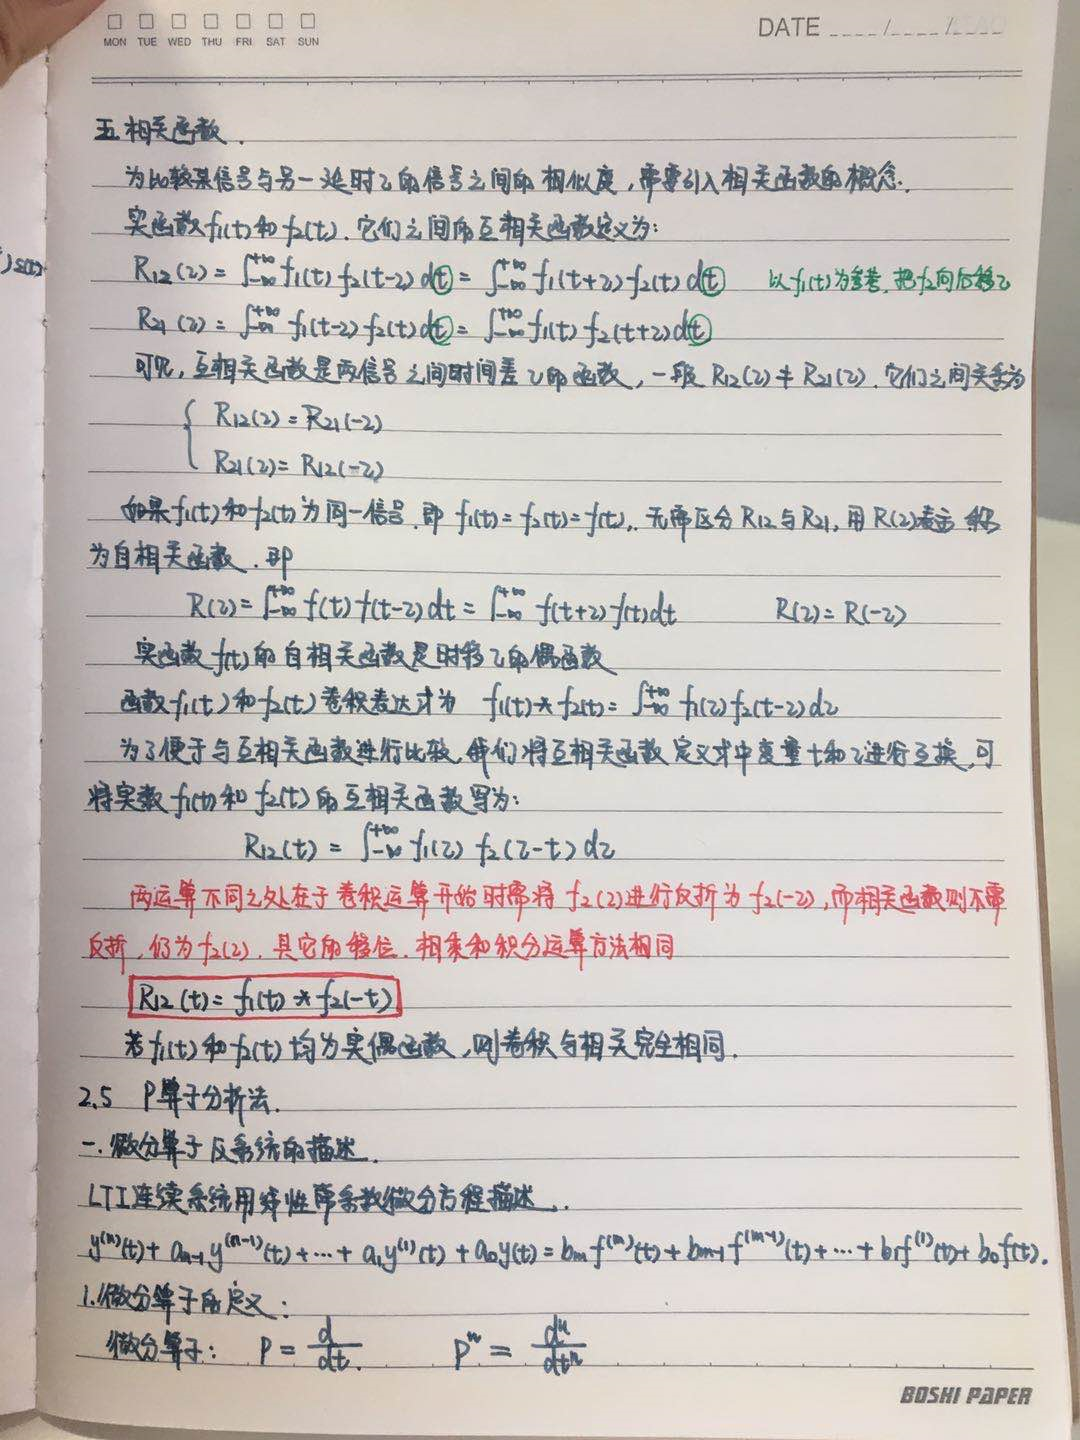 MON TUE WED THU FRI SAT SUN
DATE ____/____/____
五.相关函数.
为比较某信号与另一延时τ的信号之间的相似度,需要引入相关函数的概念.
实函数f₁(t)和f₂(t).它们之间的互相关函数定义为:
R₁₂(τ)=∫₋∞⁺∞ f₁(t) f₂(t-τ) dt = ∫₋∞⁺∞ f₁(t+τ) f₂(t) dt 以f₁(t)为参考,把f₂向后移τ
R₂₁(τ)=∫₋∞⁺∞ f₁(t-τ) f₂(t) dt = ∫₋∞⁺∞ f₁(t) f₂(t+τ) dt
可见,互相关函数是两信号之间时间差τ的函数,一般 R₁₂(τ)≠R₂₁(τ).它们之间关系为
{ R₁₂(τ)=R₂₁(-τ)
R₂₁(τ)=R₁₂(-τ)
如果f₁(t)和f₂(t)为同一信号.即 f₁(t)=f₂(t)=f(t),.无需区分R₁₂与R₂₁,用R(τ)表示 称
为自相关函数.即
R(τ)=∫₋∞⁺∞ f(t) f(t-τ) dt = ∫₋∞⁺∞ f(t+τ) f(t) dt R(τ)=R(-τ)
实函数f(t)的自相关函数是时移τ的偶函数
函数f₁(t)和f₂(t)卷积表达式为 f₁(t)*f₂(t)=∫₋∞⁺∞ f₁(τ) f₂(t-τ) dτ
为了便于与互相关函数进行比较,我们将互相关函数定义式中变量t和τ进行互换,可
将实数f₁(t)和f₂(t)的互相关函数写为:
R₁₂(t)=∫₋∞⁺∞ f₁(τ) f₂(τ-t) dτ
两运算不同之处在于卷积运算开始时需将f₂(τ)进行反折为f₂(-τ),而相关函数则不需
反折,仍为f₂(τ).其它的移位.相乘和积分运算方法相同
R₁₂(t)=f₁(t)*f₂(-t)
若f₁(t)和f₂(t)均为实偶函数,则卷积与相关完全相同.
2.5 P算子分析法.
一.微分算子及系统的描述.
LTI连续系统用线性常系数微分方程描述.
y⁽ⁿ⁾(t)+aₙ₋₁y⁽ⁿ⁻¹⁾(t)+…+a₁y⁽¹⁾(t)+a₀y(t)=bₘf⁽ᵐ⁾(t)+bₘ₋₁f⁽ᵐ⁻¹⁾(t)+…+b₁f⁽¹⁾(t)+b₀f(t).
1.微分算子的定义:
微分算子: P=d/dt. Pⁿ=dⁿ/dtⁿ
BOSHI PAPER